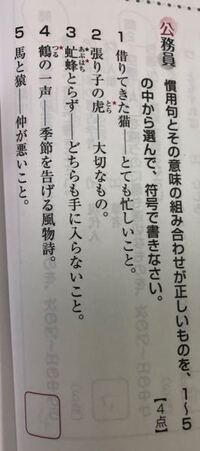 公務員 慣用句とその意味の組み合わせが正しいものを、1〜5
の中から選んで、符号で書きなさい。【4点】
1 借りてきた猫――とても忙しいこと。
2 張り子の虎――大切なもの。
3 虻蜂とらず――どちらも手に入らないこと。
4 鶴の一声――季節を告げる風物詩。
5 馬と猿――仲が悪いこと。